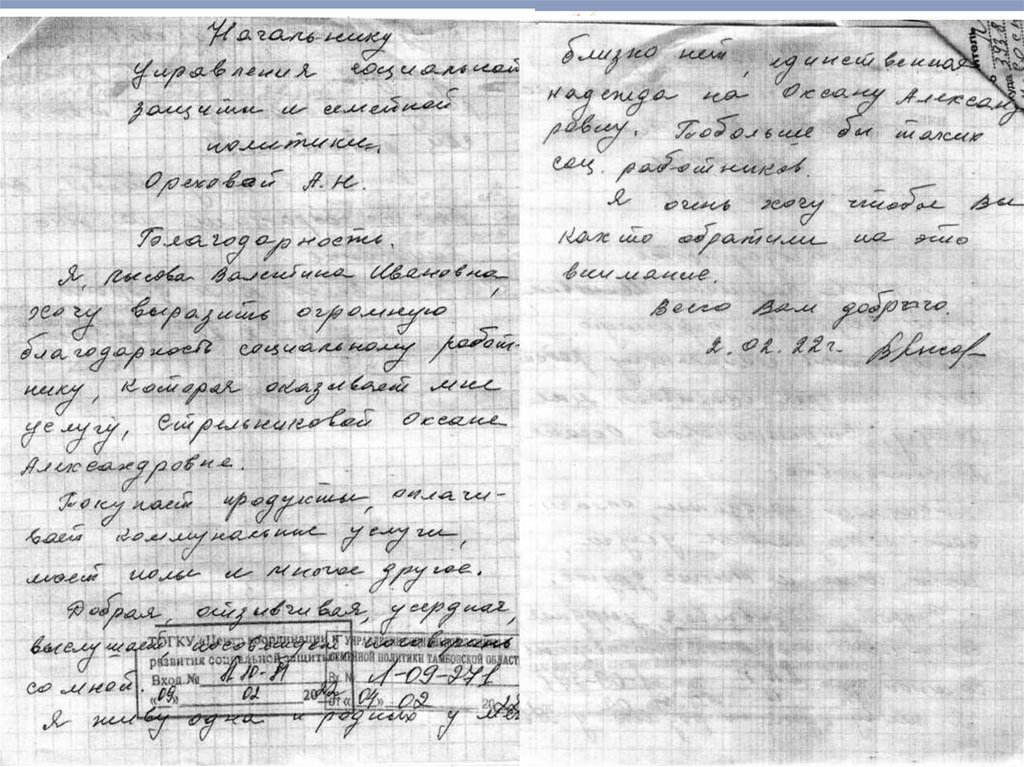 Начальнику
Управления социальной
защиты и семейной
политики
Ореховай А.Н.
Благодарность.
Я, Лысова Валентина Ивановна,
хочу выразить огромную
благодарность социальному работ-
нику, которая оказывает мне
услугу, Стрельниковой Оксане
Александровне.
Покупает продукты, оплачи-
вает коммунальные услуги,
моет полы и многое другое.
Добрая, отзывчивая, усердная,
выслушает поговорить
со мной.
Я живу одна и родных у
ТОГКУ «Центр координации и
развития социальной защиты
Вход.№
«09» 02 2022
СЕМЕЙНОЙ ПОЛИТИКИ ТАМБОВСКОЙ ОБЛАСТ
Вх № Л-09-271
от «04» 02 2022
близко нет, единственная
надежда на Оксану Александ
ровну. Побольше бы таких
соц. работников.
Я очень хочу чтобы Вы
как то обратили на это
внимание.
Всего Вам доброго.
2.02.22г.